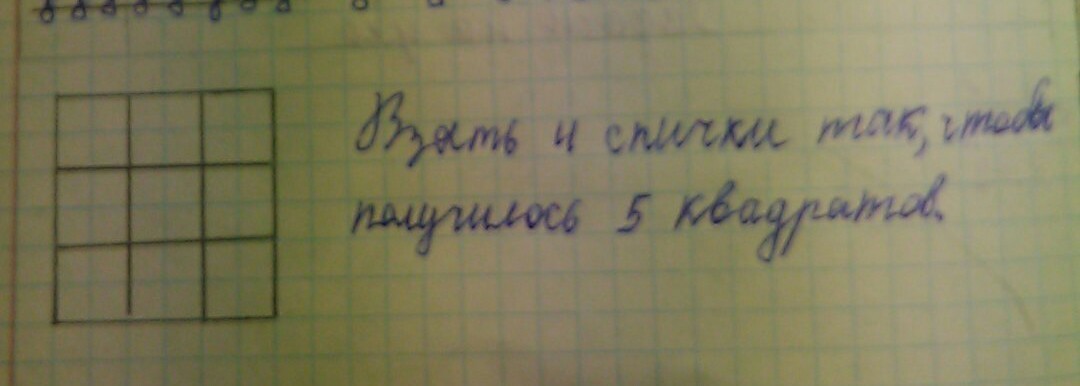 Взять 4 спички так, чтобы
получилось 5 квадратов.